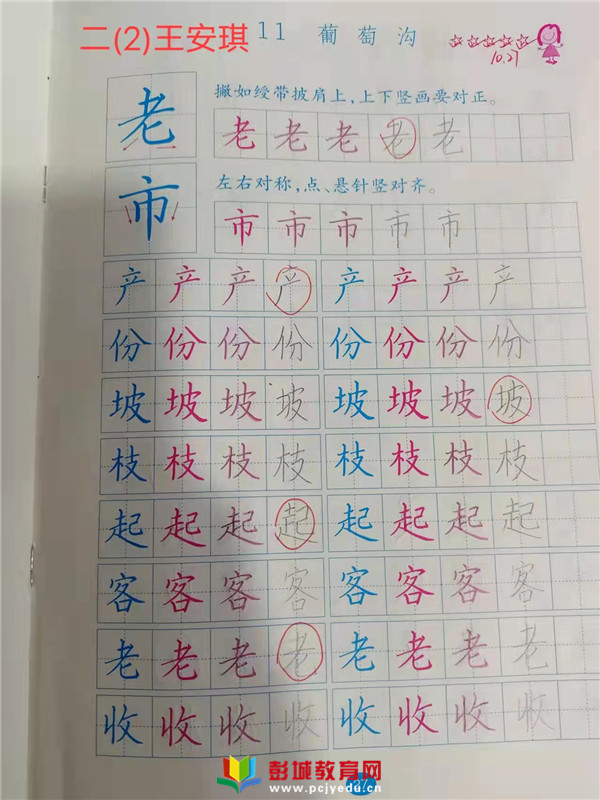 二(2)王安琪 11 葡萄沟
10.27
老 撇如绶带披肩上,上下竖画要对正。
老 老 老 老 老
市 左右对称,点、悬针竖对齐。
市 市 市 市 市
产 产 产 产 产 产 产 产
份 份 份 份 份 份 份 份
坡 坡 坡 坡 坡 坡 坡 坡
枝 枝 枝 枝 枝 枝 枝 枝
起 起 起 起 起 起 起 起
客 客 客 客 客 客 客 客
老 老 老 老 老 老 老 老
收 收 收 收 收 收 收 收
彭城教育网
www.pcjyedu.cn
27